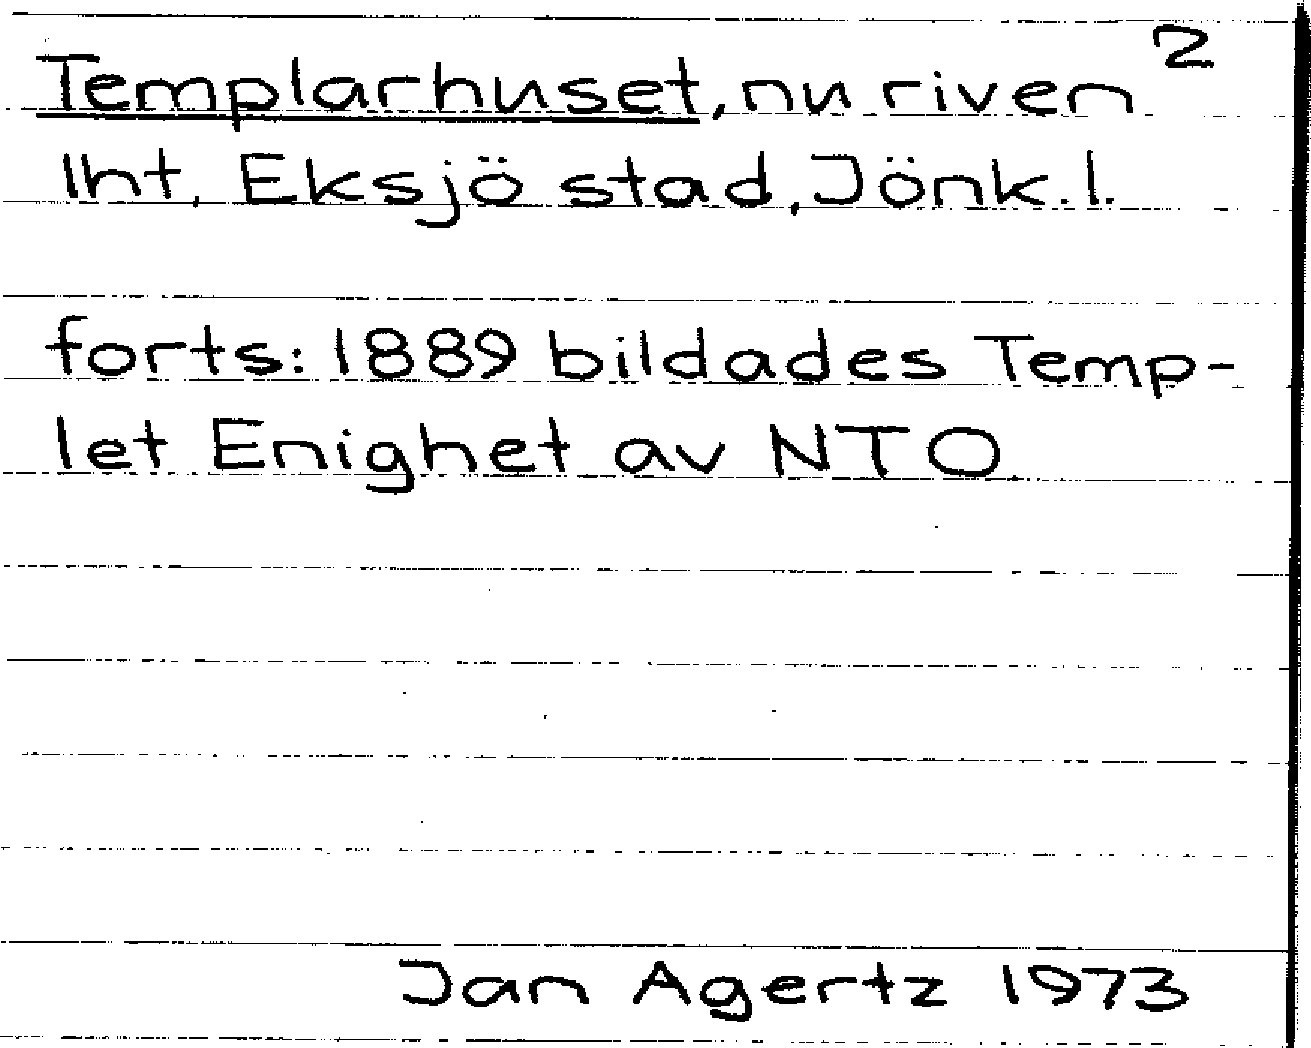 2
Templarhuset, nu riven
lht, Eksjö stad, Jönk.l.
forts: 1889 bildades Temp-
let Enighet av NTO
Jan Agertz 1973